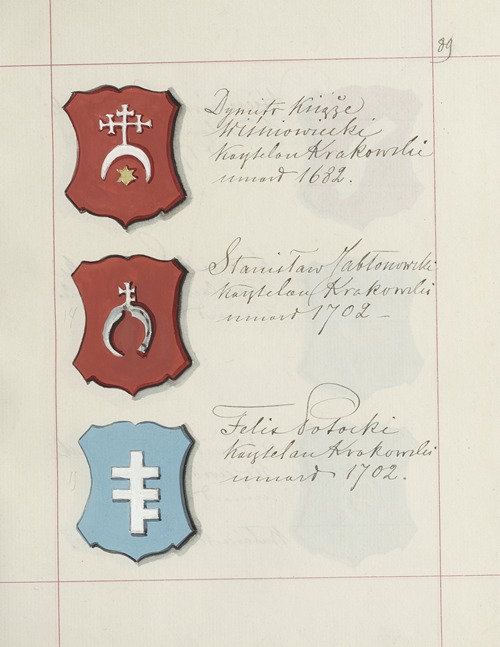 89
Dymitr Książe
Wiśniowiecki
Kasztelan Krakowski
umarł 1682.
Stanisław Jabłonowski
Kasztelan Krakowski
umarł 1702 –
Felix Potocki
Kasztelan Krakowski
umarł 1702.